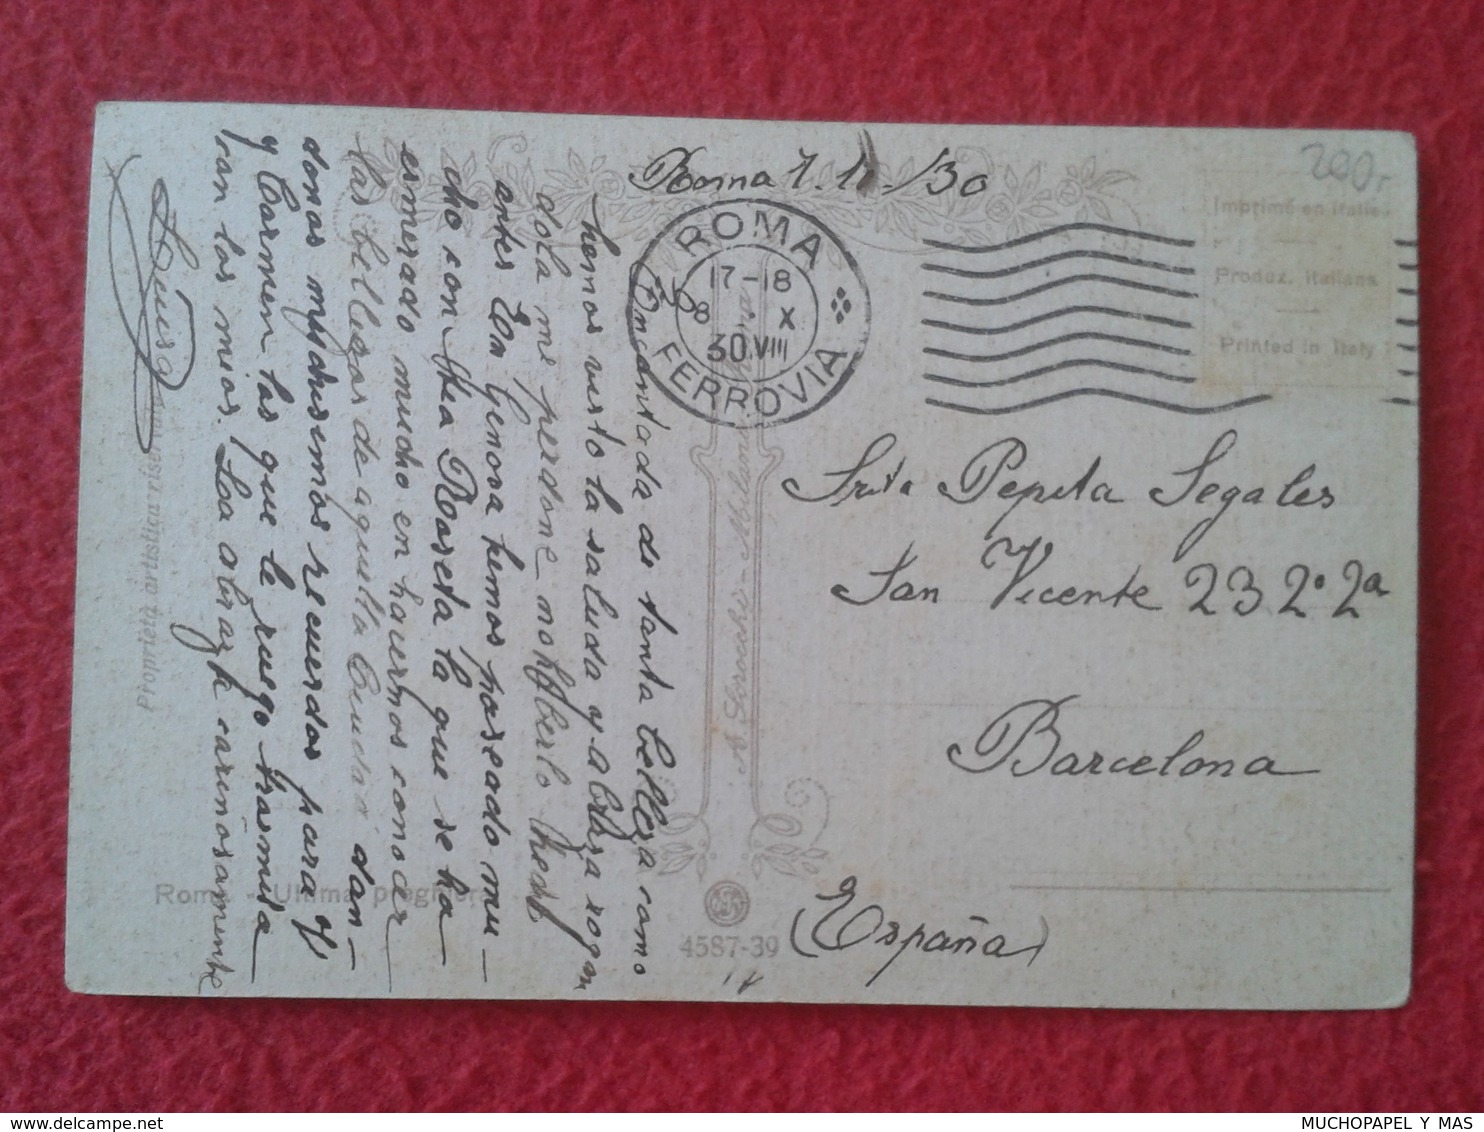 200
Roma 1.11-/30
Imprimé en Italie
Produz. Italiana
Printed in Italy
ROMA
17-18
8 X
30 VIII
FERROVIA
Encantada de tanta belleza como
hemos visto la saluda y abraza rogan
dola me perdone no haberlo hecho
antes En Genova hemos paseado mu-
cho con tia Roseta la que se ha
esmerado mucho en hacernos conocer
las bellezas de aquella Ciudad dan-
donos muchisimos recuerdos para V
y Carmen las que le ruego trasmita
con los mios. Los abraza cariñosamente
Luisa
Srita Pepita Segales
San Vicente 23 2º 2ª
Barcelona
(España)
A. Scrocchi - Milano
Proprietà artistica riservata
Roma - Ultima preghiera
4587-39
MUCHOPAPEL Y MAS